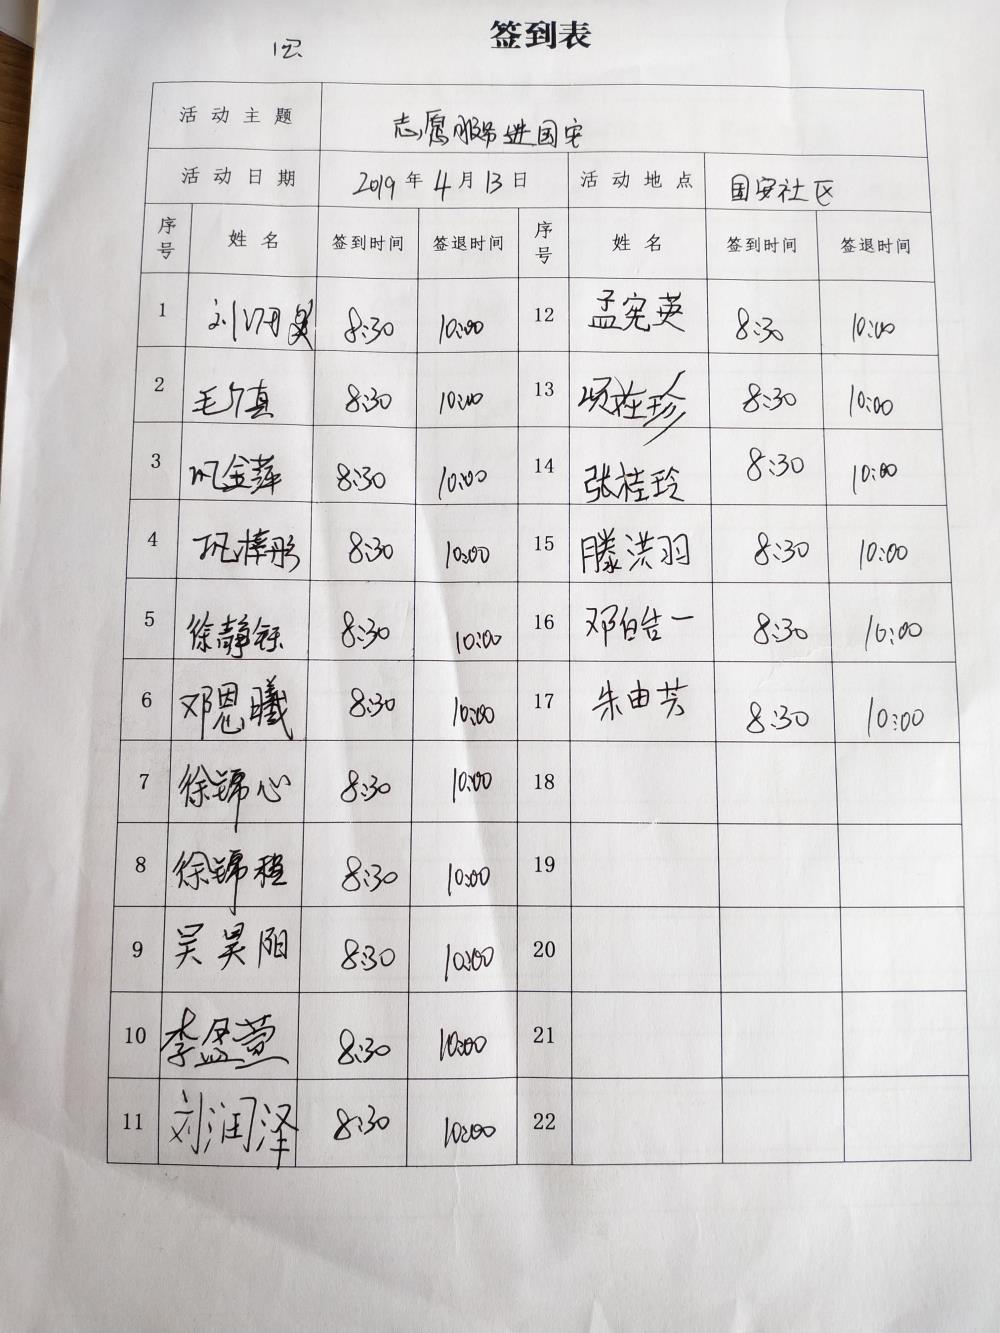 签到表
活动主题 志愿服务进国安
活动日期 2019年4月13日 活动地点 国安社区
序号 姓名 签到时间 签退时间 序号 姓名 签到时间 签退时间
1 8:30 10:00 12 孟宪英 8:30 10:00
2 毛 真 8:30 10:00 13 珍 8:30 10:00
3 金萍 8:30 10:00 14 张桂玲 8:30 10:00
4 8:30 10:00 15 滕洪羽 8:30 10:00
5 徐静钰 8:30 10:00 16 邓皓一 8:30 10:00
6 邓恩曦 8:30 10:00 17 朱由芳 8:30 10:00
7 徐锦心 8:30 10:00 18
8 徐锦程 8:30 10:00 19
9 吴昊阳 8:30 10:00 20
10 李昱萱 8:30 10:00 21
11 刘润泽 8:30 10:00 22